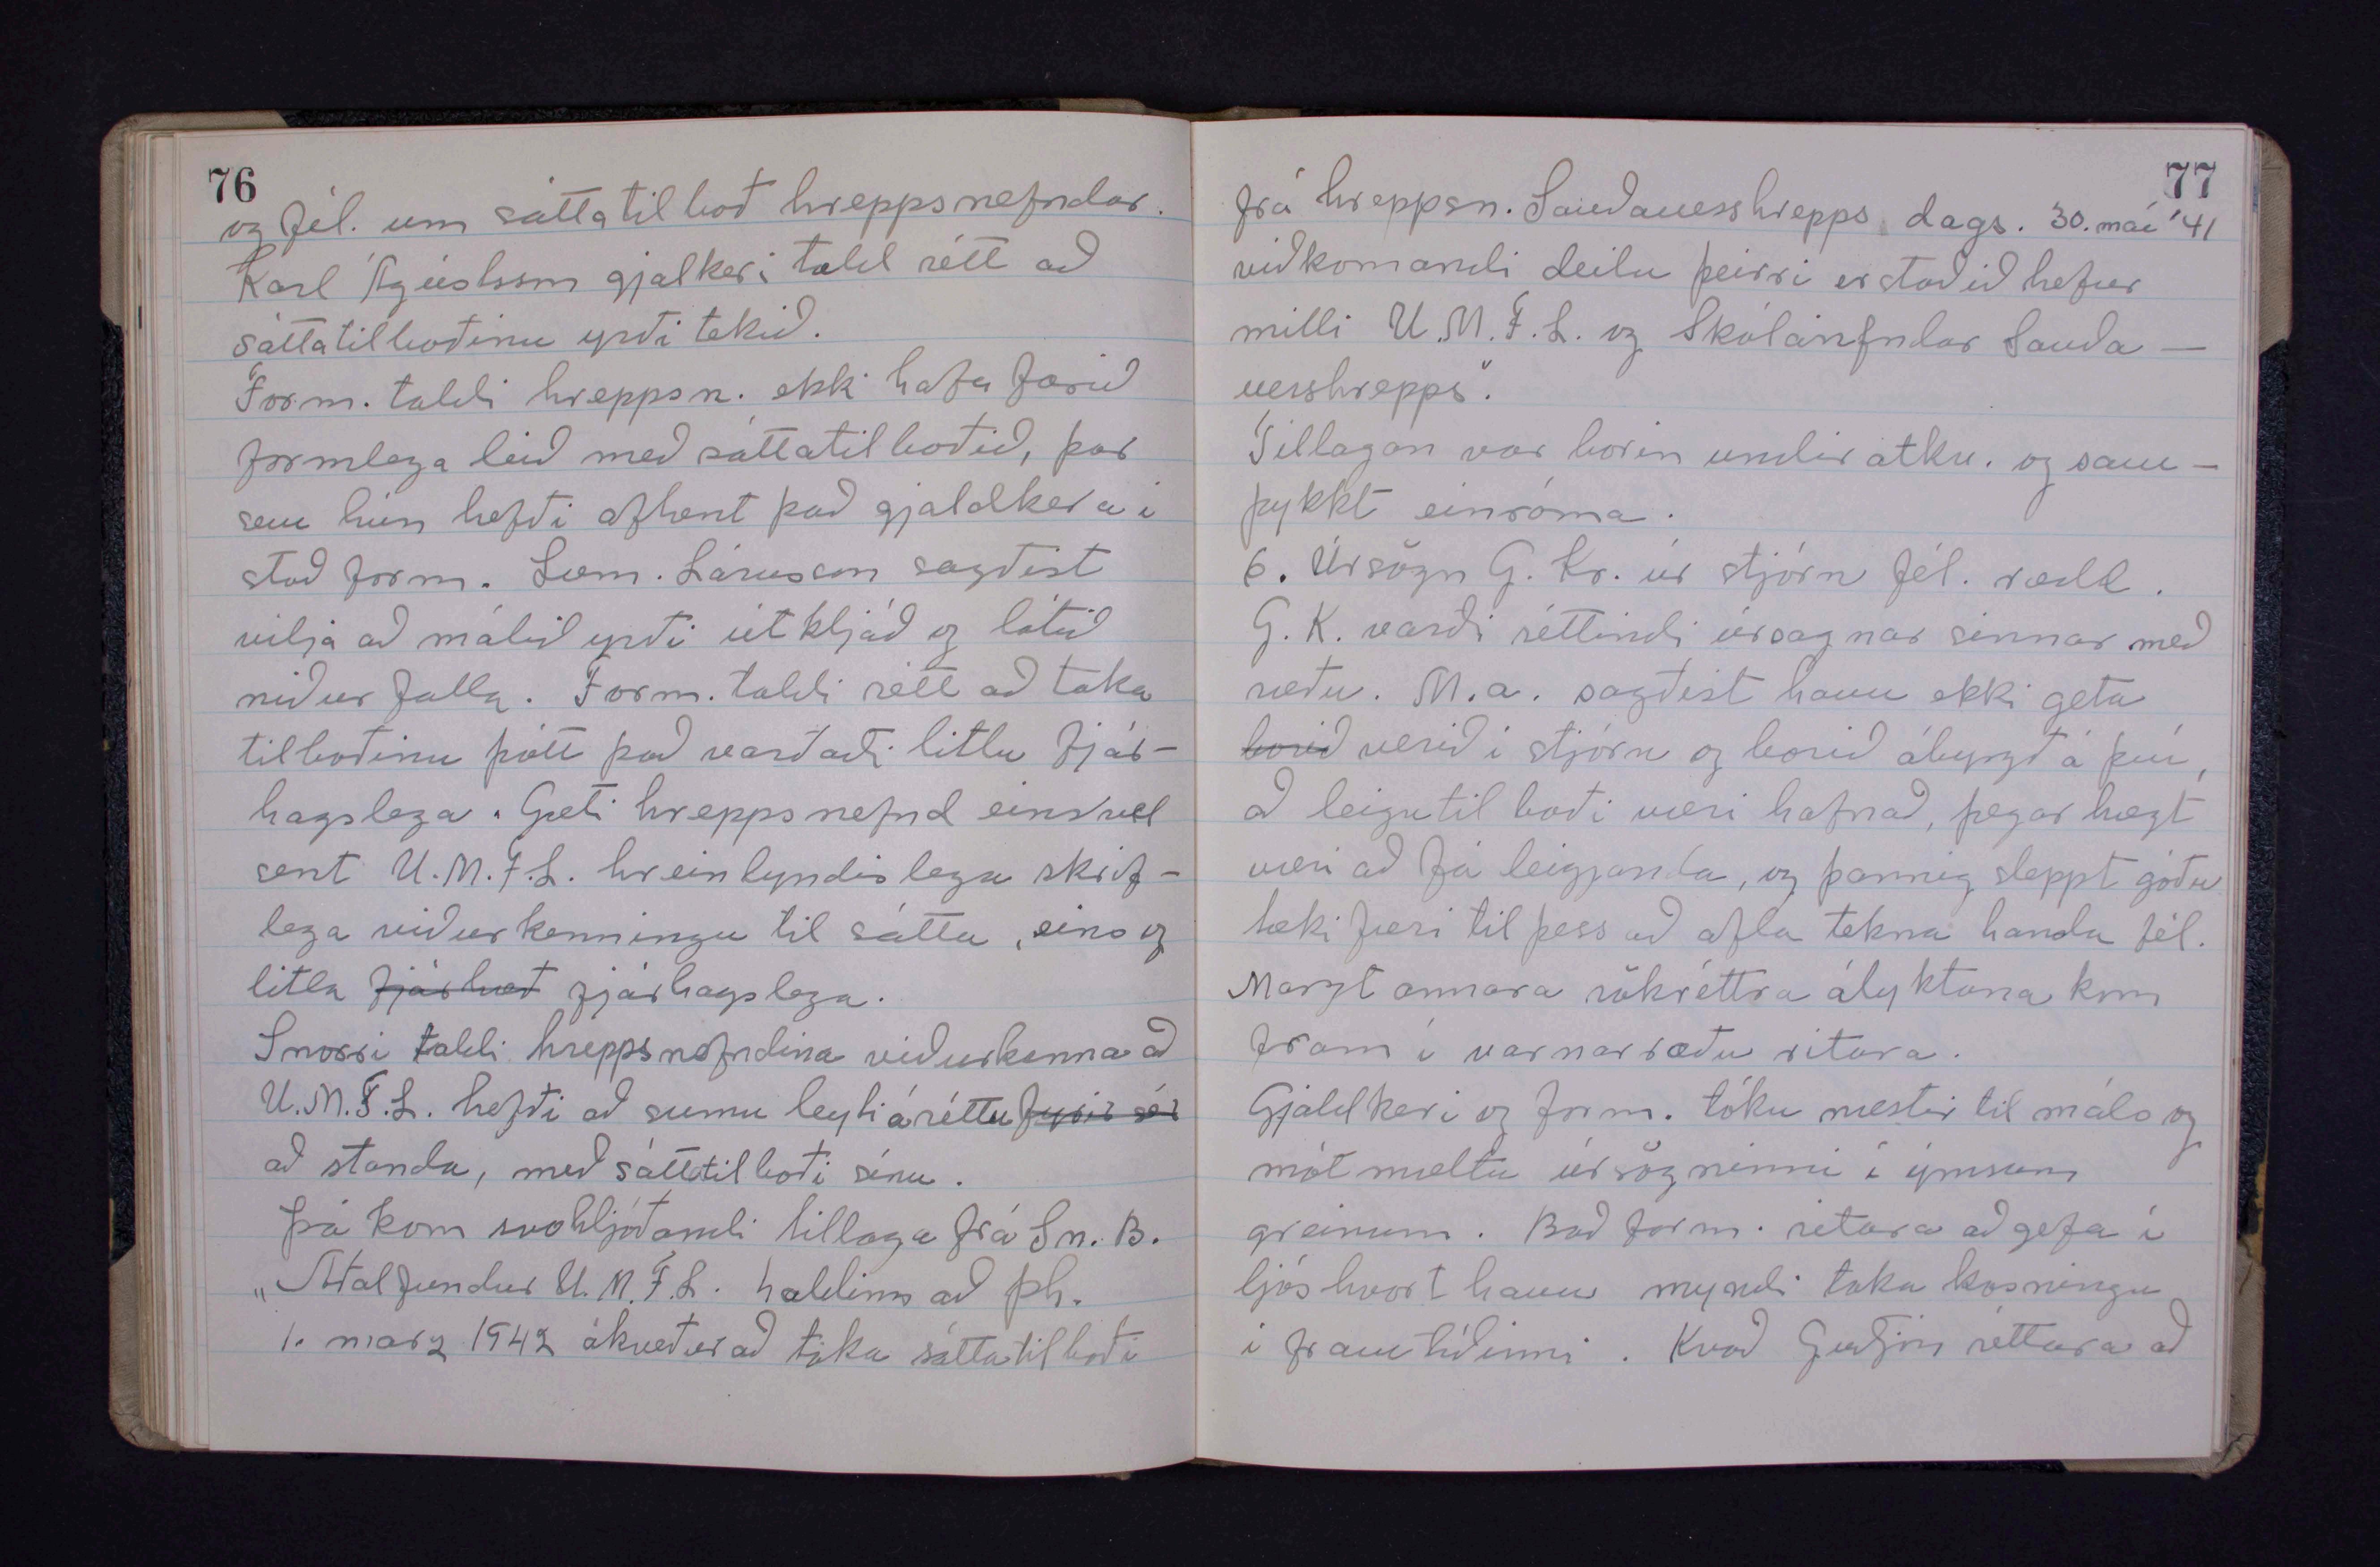 76
og fél. um sáttatilboð hreppsnefndar.
Karl Ágústsson gjalkeri taldi rétt að
sáttatilboðinu yrði tekið.
Form. taldi hreppsn. ekki hafa farið
formlega leið með sáttatilboðið, þar
sem hún hefði afhent það gjaldkera í
stað form. Sæm. Lárusson sagðist
vilja að málið yrði útkljáð og látið
niður falla. Form. taldi rétt að taka
tilboðinu þótt það varðaði litlu fjár-
hagslega. Gæti hreppsnefnd eins vel
sent U.M.F.L. hreinlyndislega skrif-
lega viðurkenningu til sátta, eins og
litla fjárhæð fjárhagslega.
Snorri taldi hreppsnefndina viðurkenna að
U.M.F.L. hefði að sumu leyti á réttu fyrir sér
að standa, með sáttatilboði sínu.
Þá kom svohljóðandi tillaga frá Sn. B.
„Aðalfundur U.M.F.L. haldinn að Þh.
1. marz 1942 ákveður að taka sáttatilboði
77
frá hreppsn. Sauðanesshrepps dags. 30. maí '41
viðkomandi deilu þeirri er staðið hefur
milli U.M.F.L. og Skólanefndar Sauða-
nesshrepps".
Tillagan var borin undir atkv. og sam-
þykkt einróma.
6. Úrsögn G. Kr. úr stjórn fél. rædd.
G. K. varði réttindi úrsagnar sinnar með
ræðu. M.a. sagðist hann ekki geta
borið verið í stjórn og borið ábyrgð á því,
að leigutilboði væri hafnað, þegar hægt
væri að fá leigjanda, og þannig sleppt góðu
tækifæri til þess að afla tekna handa fél.
Margt annara rökréttra ályktana kom
fram í varnarræðu ritara.
Gjaldkeri og form. tóku næstir til máls og
mótmæltu úrsögninni í ýmsum
greinum. Bað form. ritara að gefa í
ljós hvort hann myndi taka kosningu
í framtíðinni. Kvað Guðjón réttara að